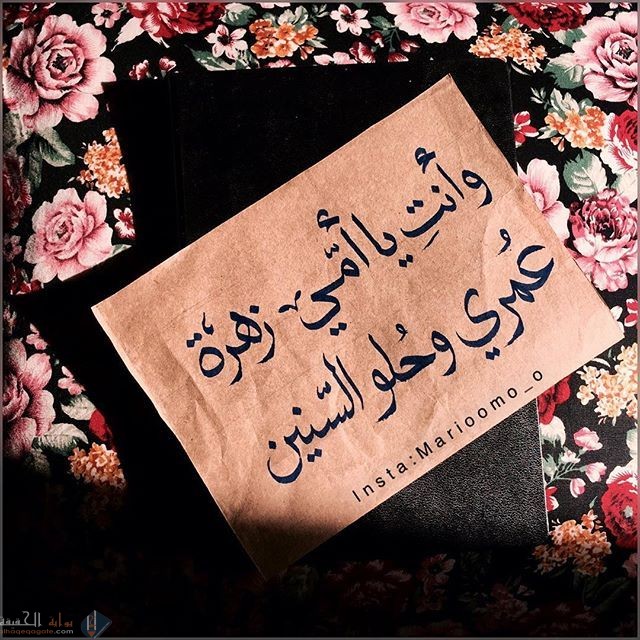 وأنتِ يا أمّي زهرة
عُمري وحُلو السّنين
Insta:Marioomo_o
بوابة الحقيقة